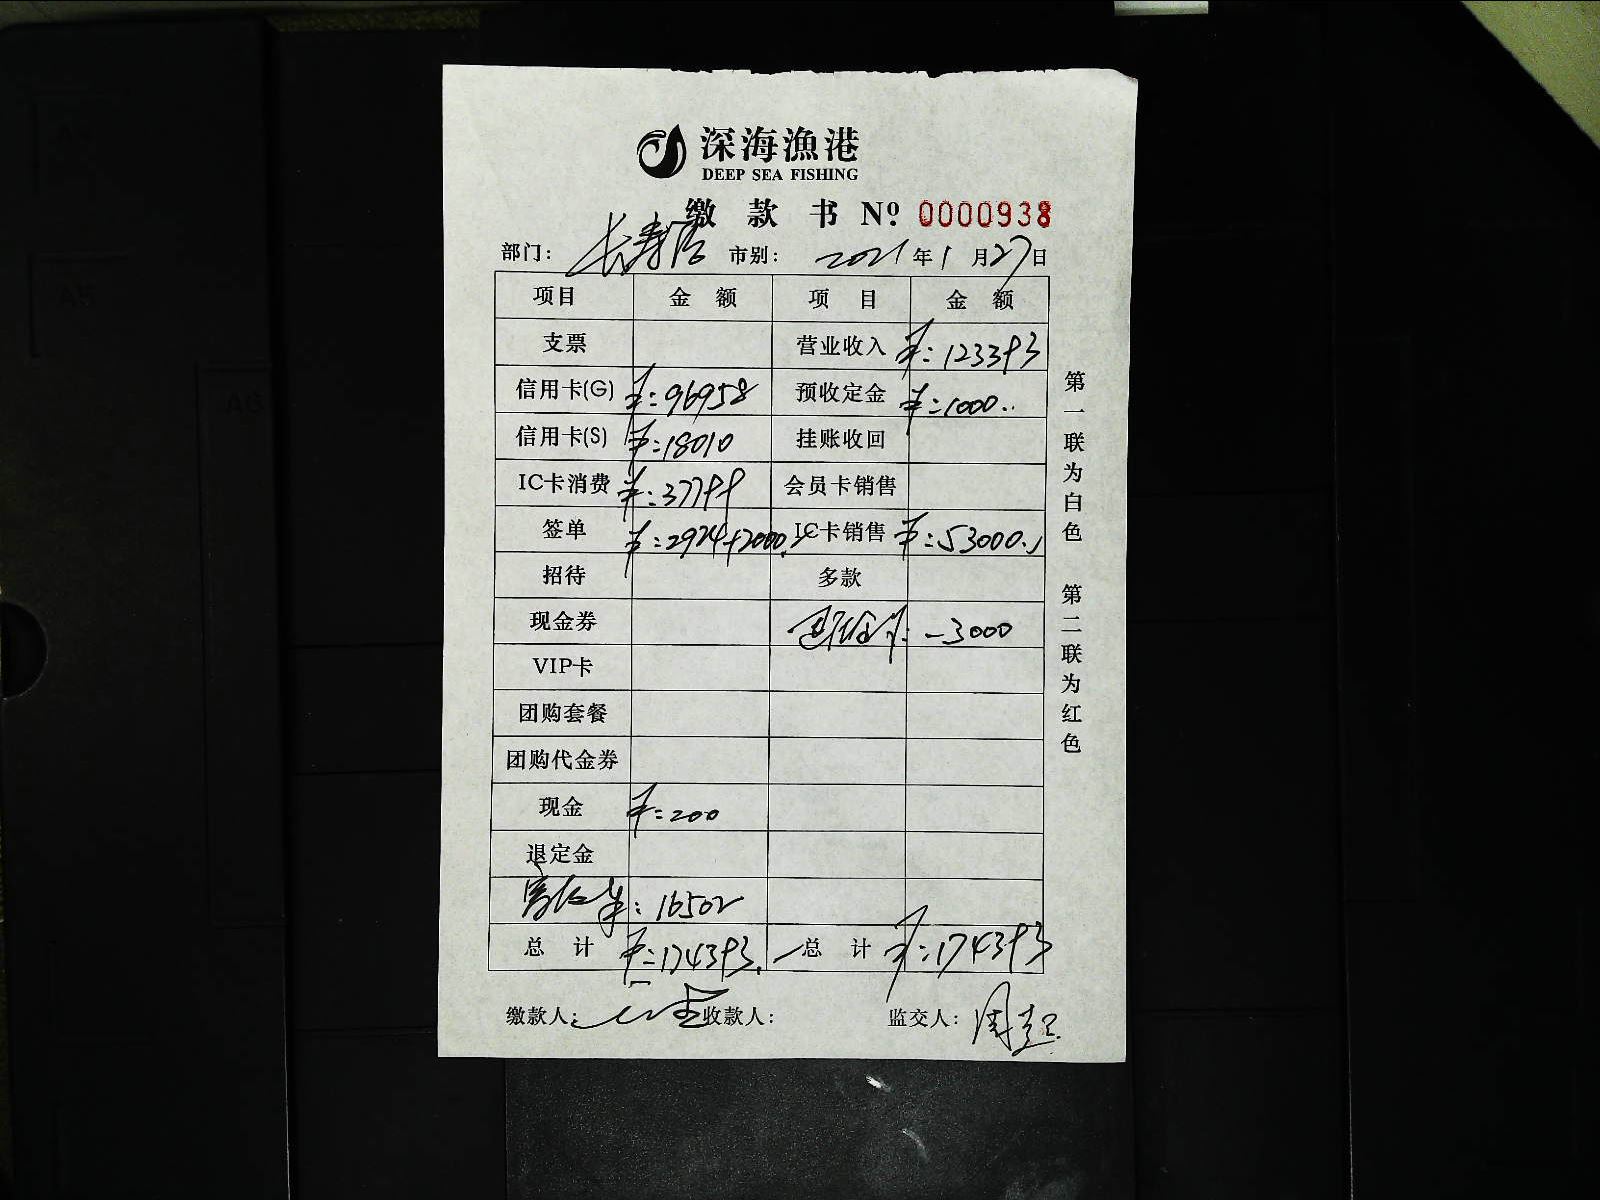 深海漁港
DEEP SEA FISHING
缴款书 Nº: 0000938
部门: 长寿店 市别: 2021年1月27日
项目 金额 项目 金额
支票 营业收入 ¥:123393
信用卡(G) ¥:96958 预收定金 ¥:1000..
信用卡(S) ¥:18010 挂账收回
IC卡消费 ¥:37799 会员卡销售
签单 ¥:2924+2000. IC卡销售 ¥:53000.
招待 多款
现金券 -3000
VIP卡
团购套餐
团购代金券
现金 ¥:200
退定金
: 16502
总计 ¥:174393. 总计 ¥:174393
缴款人: 收款人: 监交人:
第一联为白色 第二联为红色